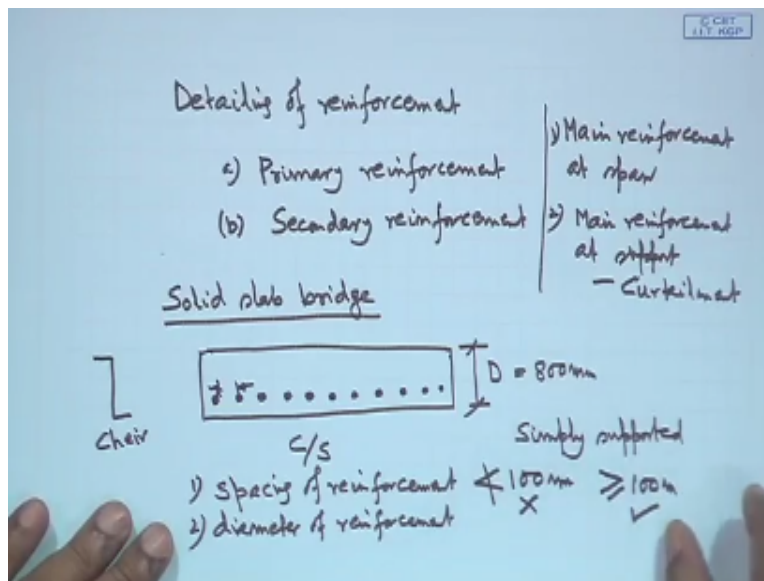 © CET
I.I.T. KGP
Detailing of reinforcement
a) Primary reinforcement
(b) Secondary reinforcement
1) Main reinforcement
at span
2) Main reinforcement
at support
- Curtailment
Solid slab bridge
D = 800mm
Chair
C/S
Simply supported
1) spacing of reinforcement ≮ 100mm ≥ 100m
× ✓
2) diameter of reinforcement